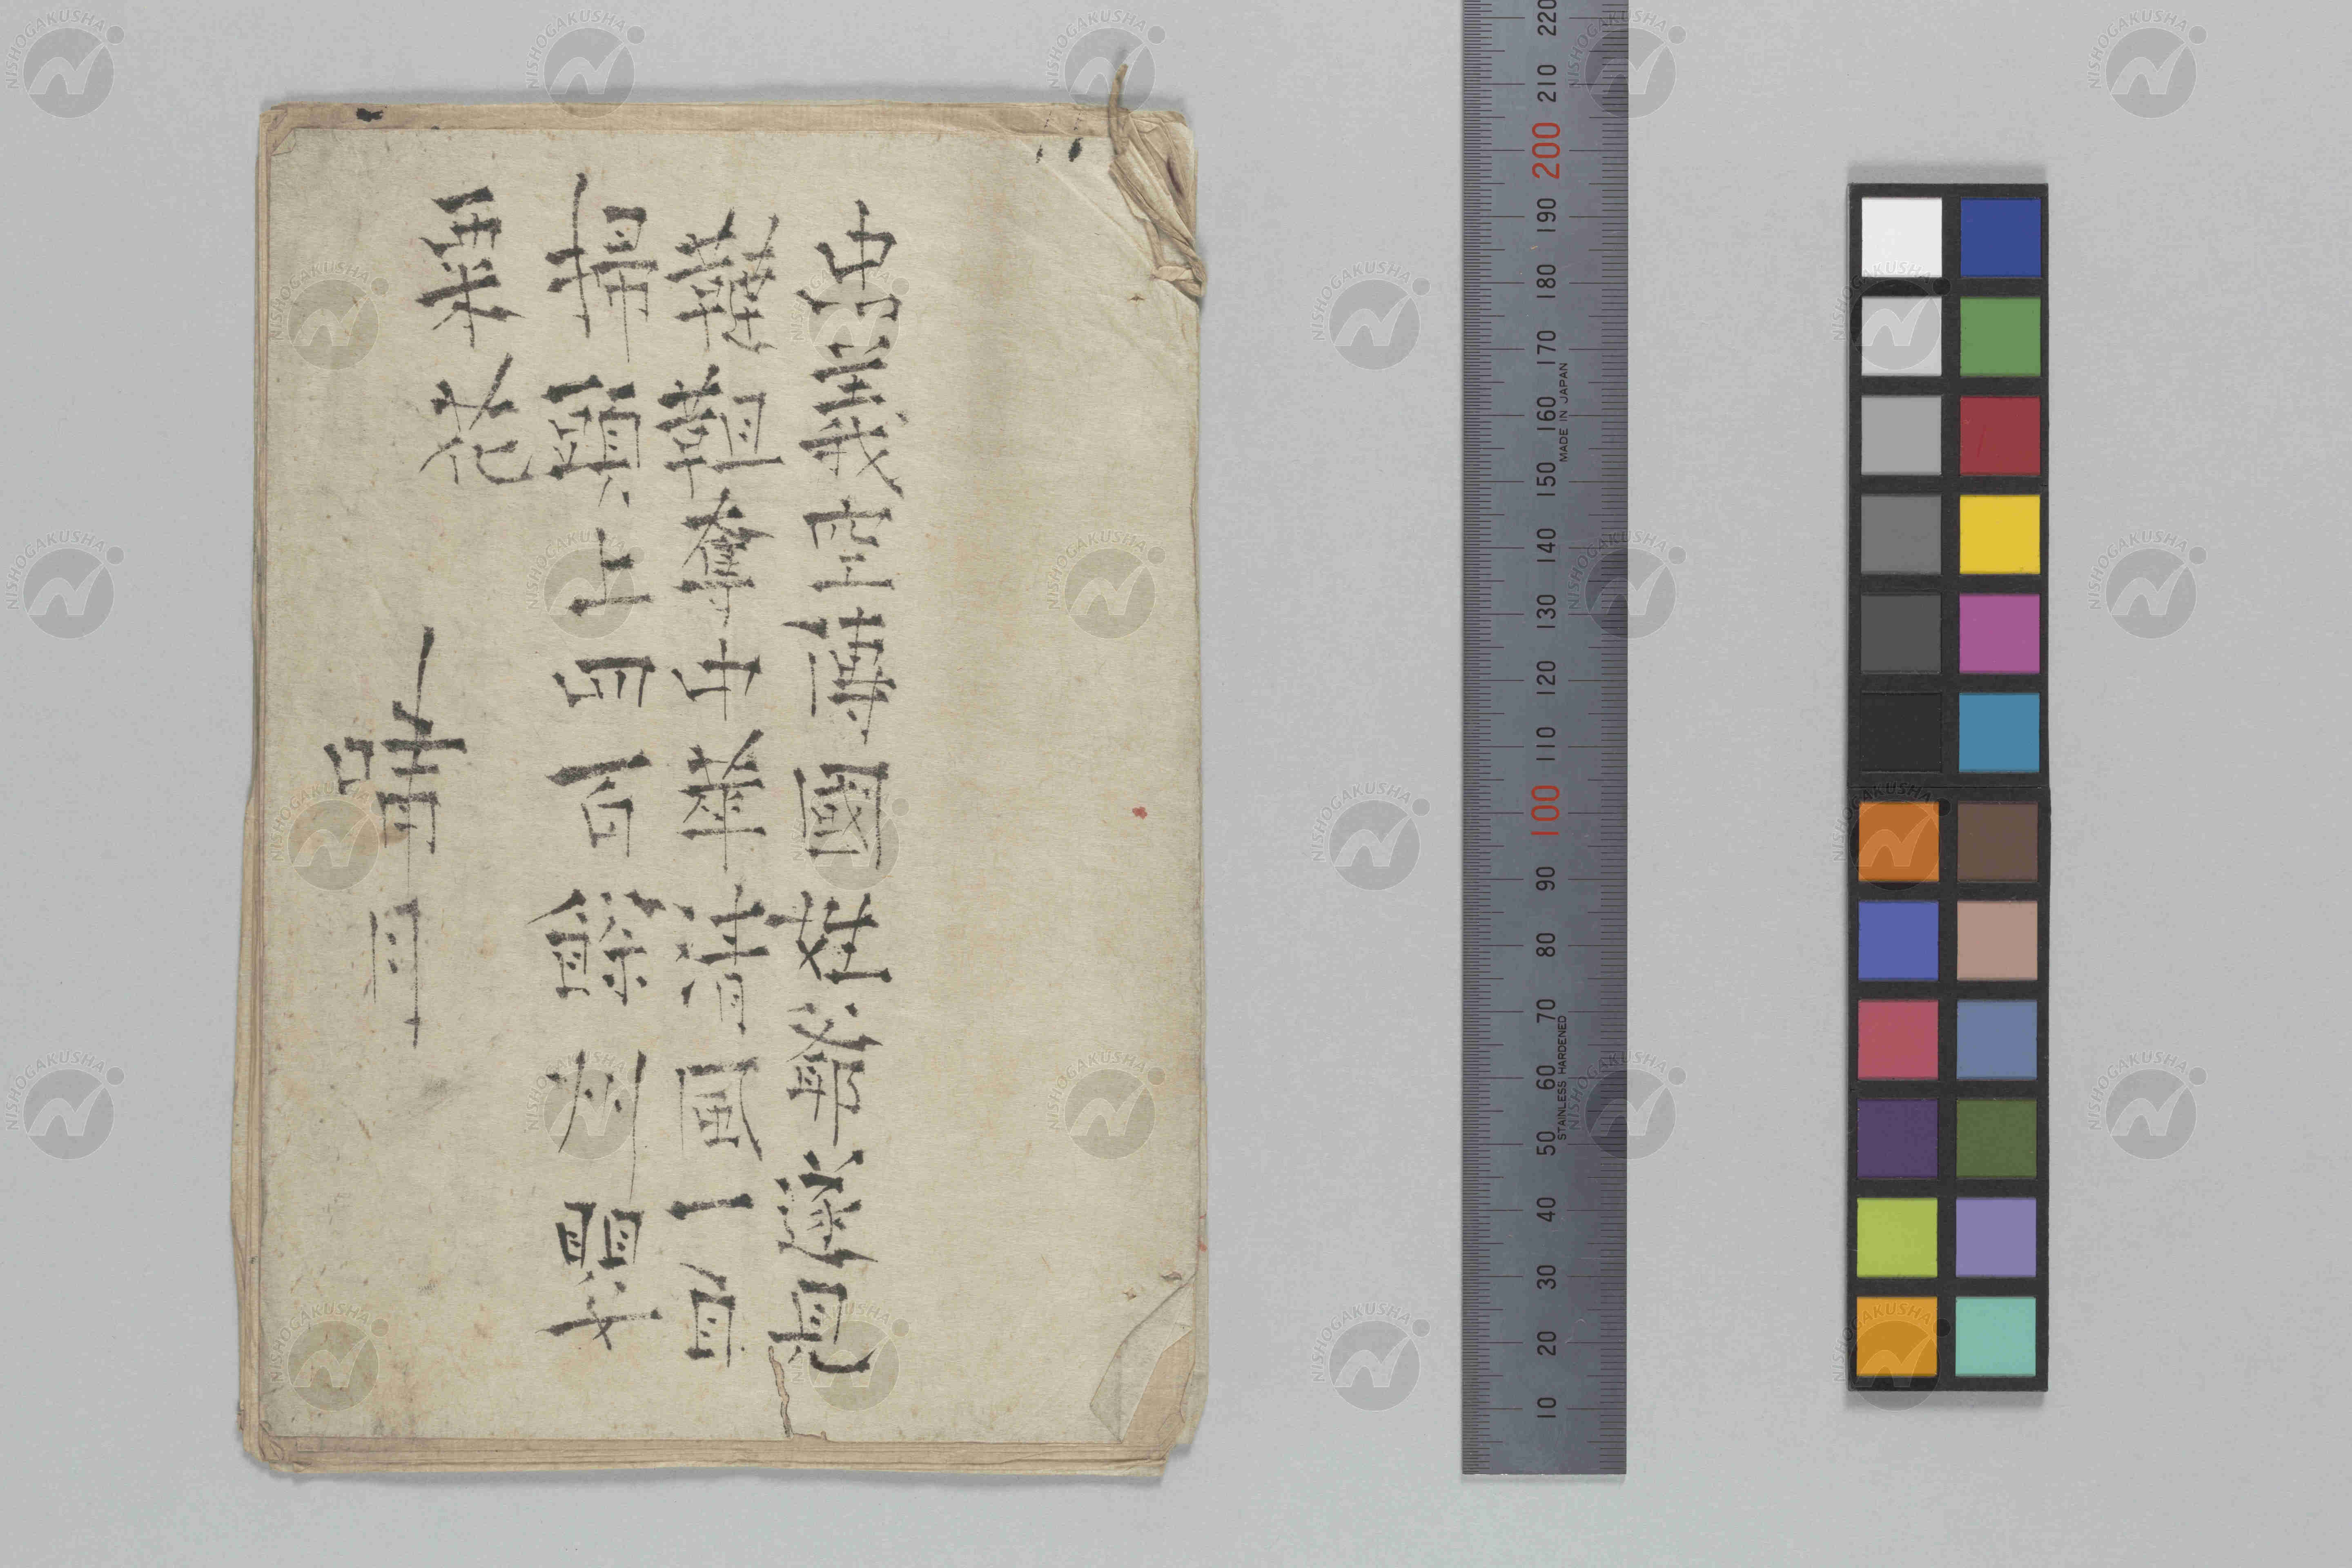 忠義空傳國姓爺傍看
韃靼奪中華清風一自
掃頭上四百餘州嬰
粟花
220
210
200
190
180
170
160
150
140
130
120
110
100
90
80
70
60
50
40
30
20
10
MADE IN JAPAN
STAINLESS HARDENED
NISHOGAKUSHA